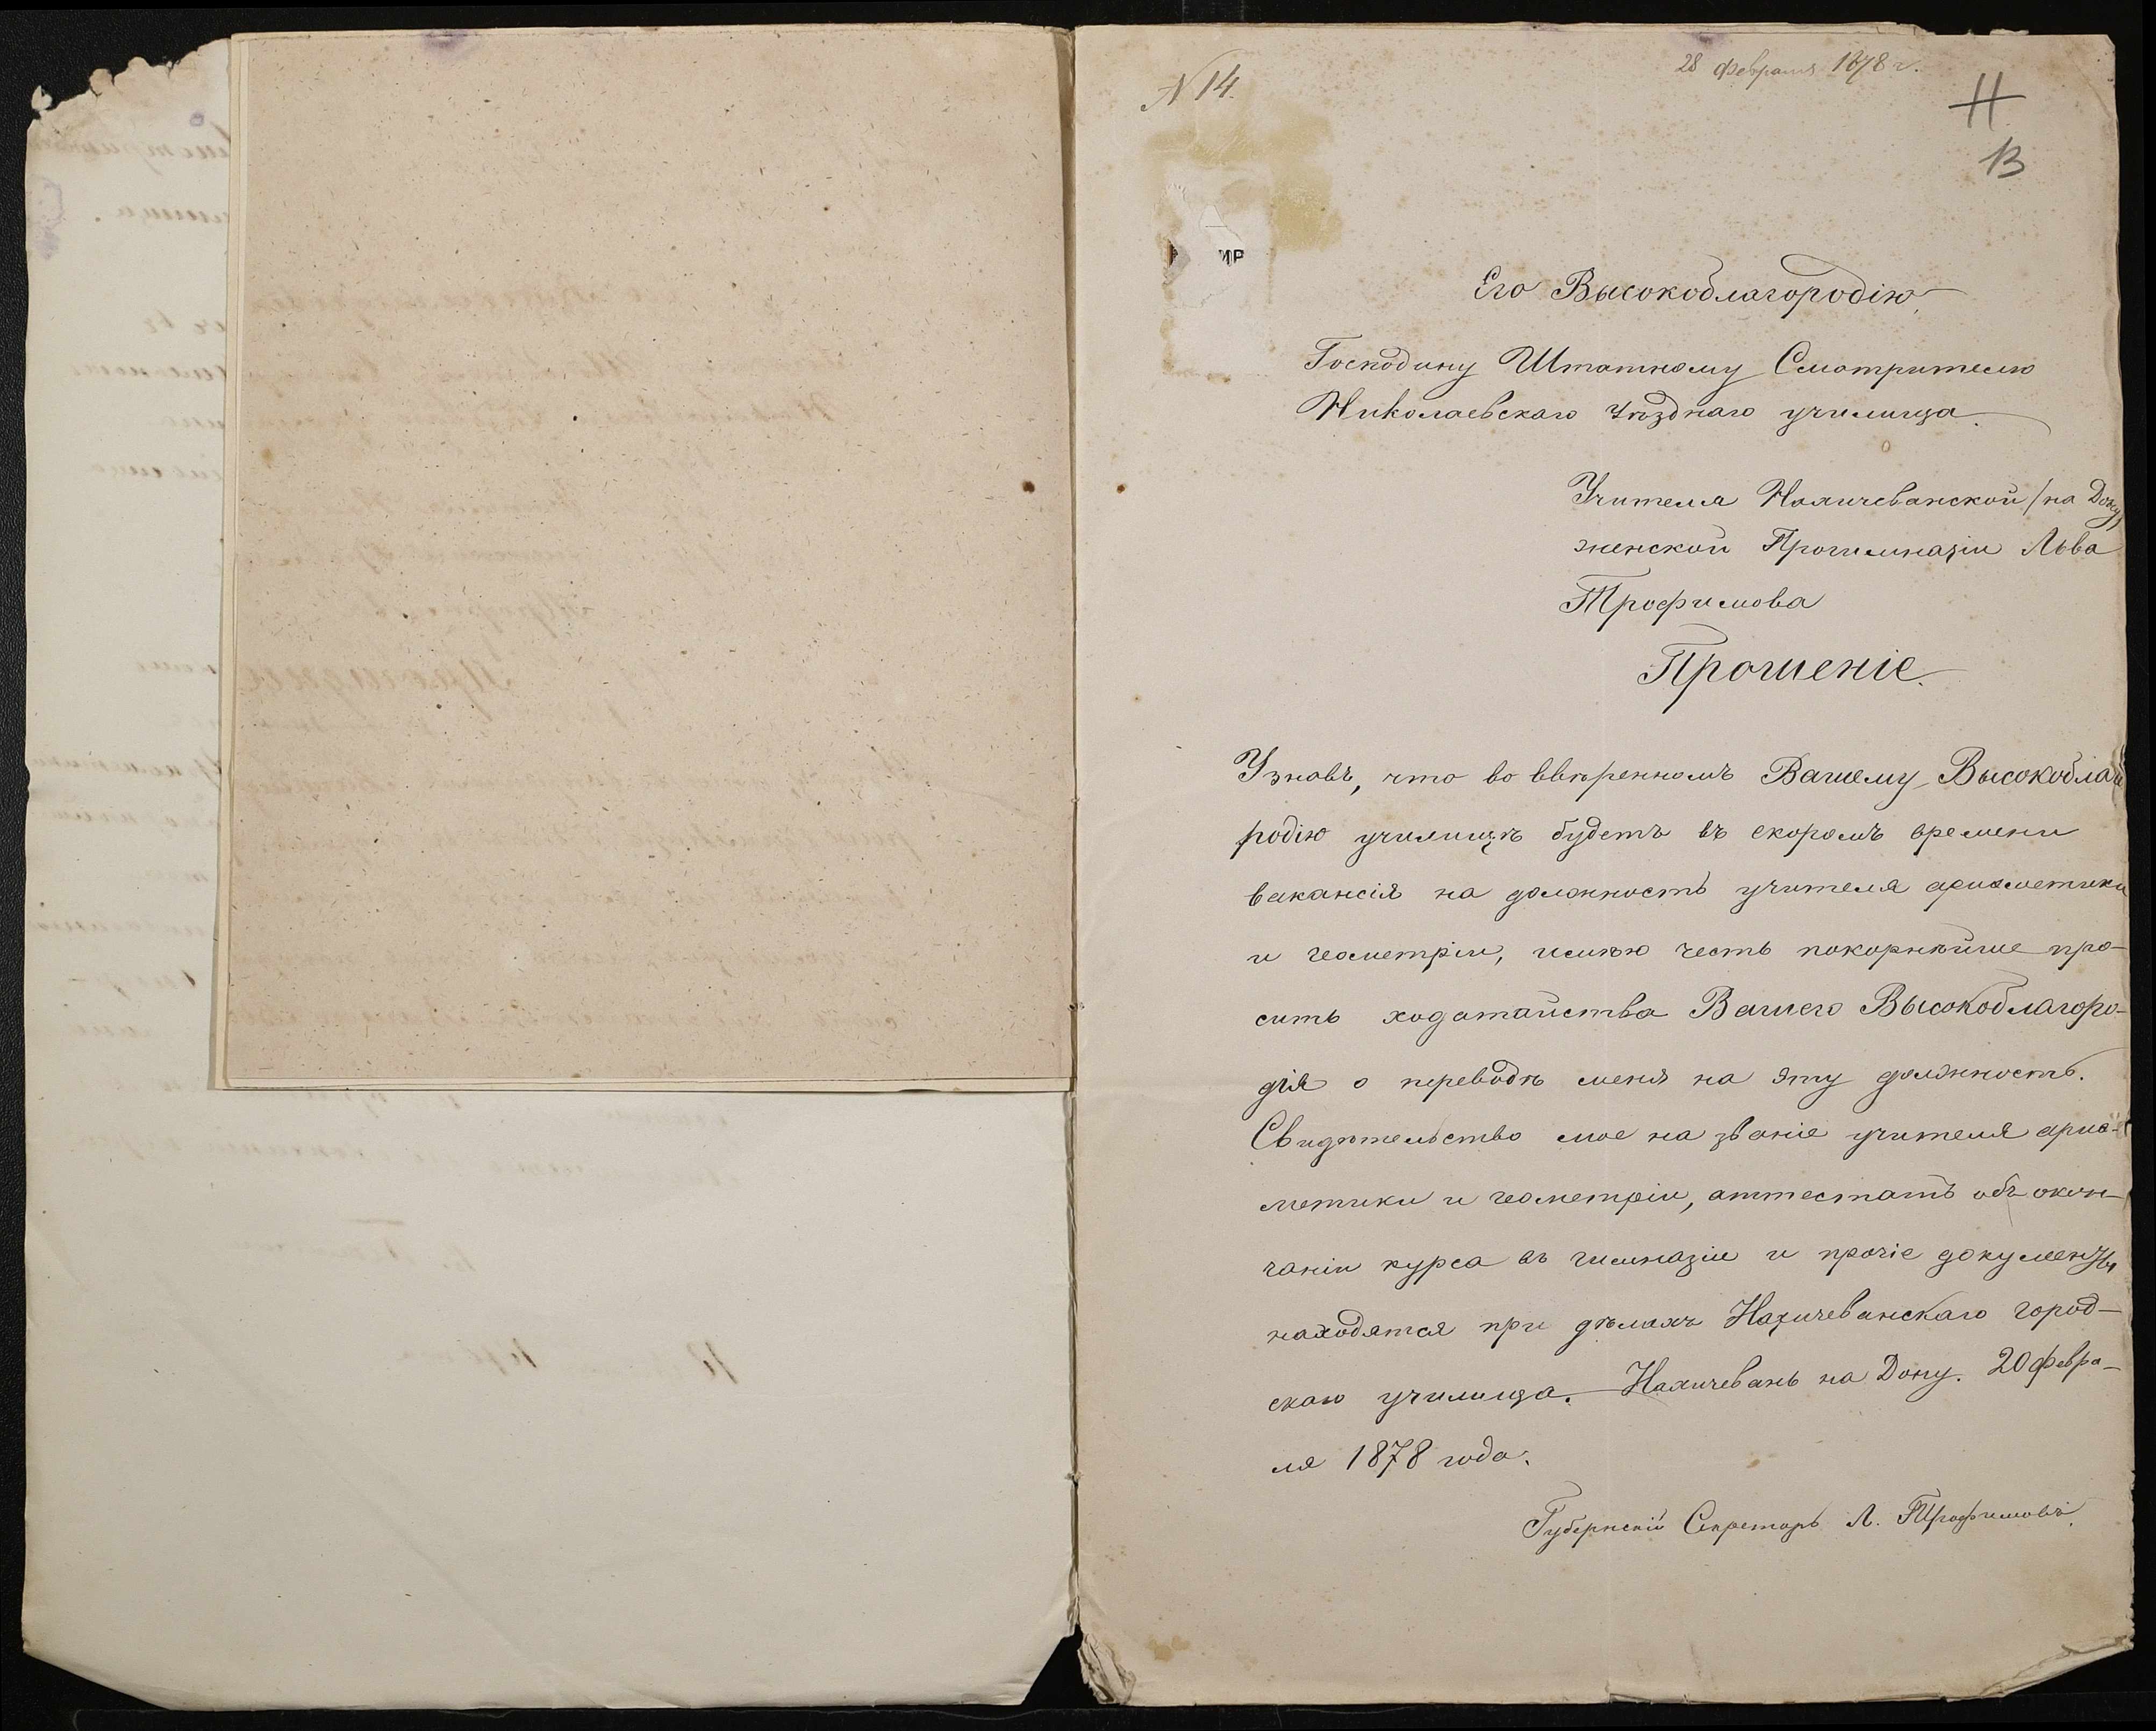 N 14.
28 февраля 1878 г.
11
13
ИР
Его Высокоблагородію,
Господину Штатному Смотрителю
Николаевскаго Уѣзднаго училища.
Учителя Нахичеванской /на Дону/
женской Прогимназіи Льва
Трофимова
Прошеніе.
Узнавъ, что во ввѣренномъ Вашему Высокоблаго
родію училищѣ будетъ въ скоромъ времени
вакансія на должность учителя ариѳметики
и геометріи, имѣю честь покорнѣйше про-
сить ходатайства Вашего Высокоблагоро-
дія о переводѣ меня на эту должность.
Свидѣтельство мое на званіе учителя ариѳ-
метики и геометріи, аттестатъ объ окон-
чаніи курса въ гимназіи и прочіе документы
находятся при дѣлахъ Нахичеванскаго город-
скаго училища. Нахичевань на Дону. 20 февра-
ля 1878 года.
Губернскій Секретарь Л. Трофимовъ.